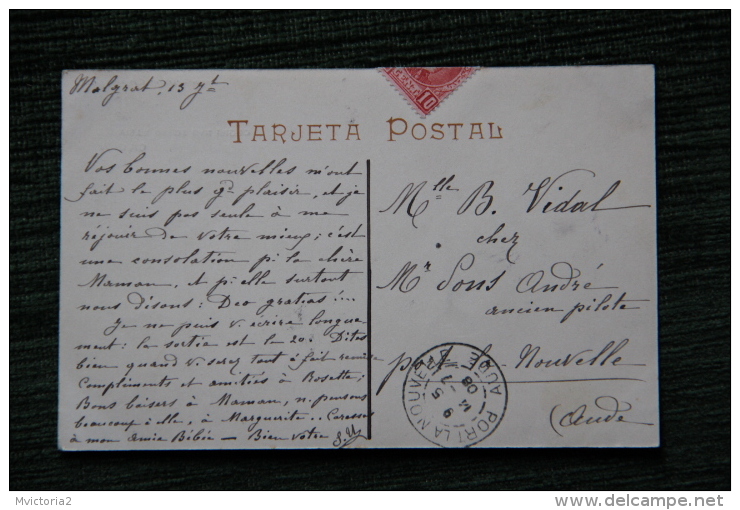 Malgrat, 13 7bt
TARJETA POSTAL
10
Vos bonnes nouvelles m'ont
fait le plus gd plaisir, et je
ne suis pas seule à me
réjouir de votre mieux; c'est
une consolation pr la chère
Maman, et pr elle surtout
nous disons: Deo gratias!...
Je ne puis v. écrire longue
ment: la sortie est le 20. Dites
bien quand v. serez tout à fait remise
Compliments et amitiés à Bosette;
Bons baisers à Maman, n. pensons
beaucoup à elle, à Marguerite.. Caresses
à mon amie Bébée — Bien vôtre
Mlle B. Vidal
chez
Mr Pons André
ancien pilote
port-la-Nouvelle
(Aude
PORT LA NOUVELLE
AUDE
Mvictoria2
www.delcampe.net